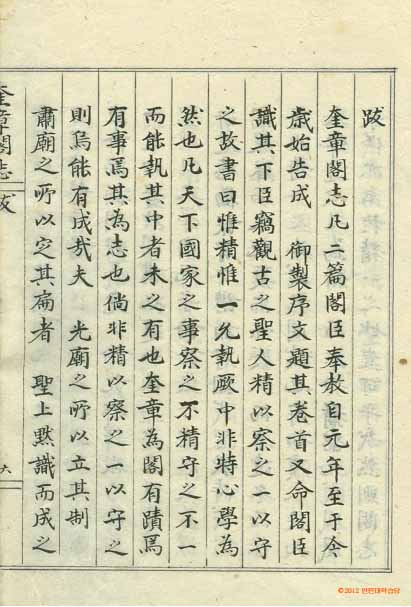 跋
奎章閣志凡二篇閣臣奉敎自元年至于今
歲始告成 御製序文題其卷首又命閣臣
識其下臣竊觀古之聖人精以察之一以守
之故書曰惟精惟一允執厥中非特心學爲
然也凡天下國家之事察之不精守之不一
而能執其中者未之有也奎章為閣有蹟焉
有事焉其為志也倘非精以察之一以守之
則烏能有成哉夫 光廟之所以立其制
肅廟之所以定其扁者 聖上默識而成之
奎章閣志 跋 六
©2012 한민대학습당